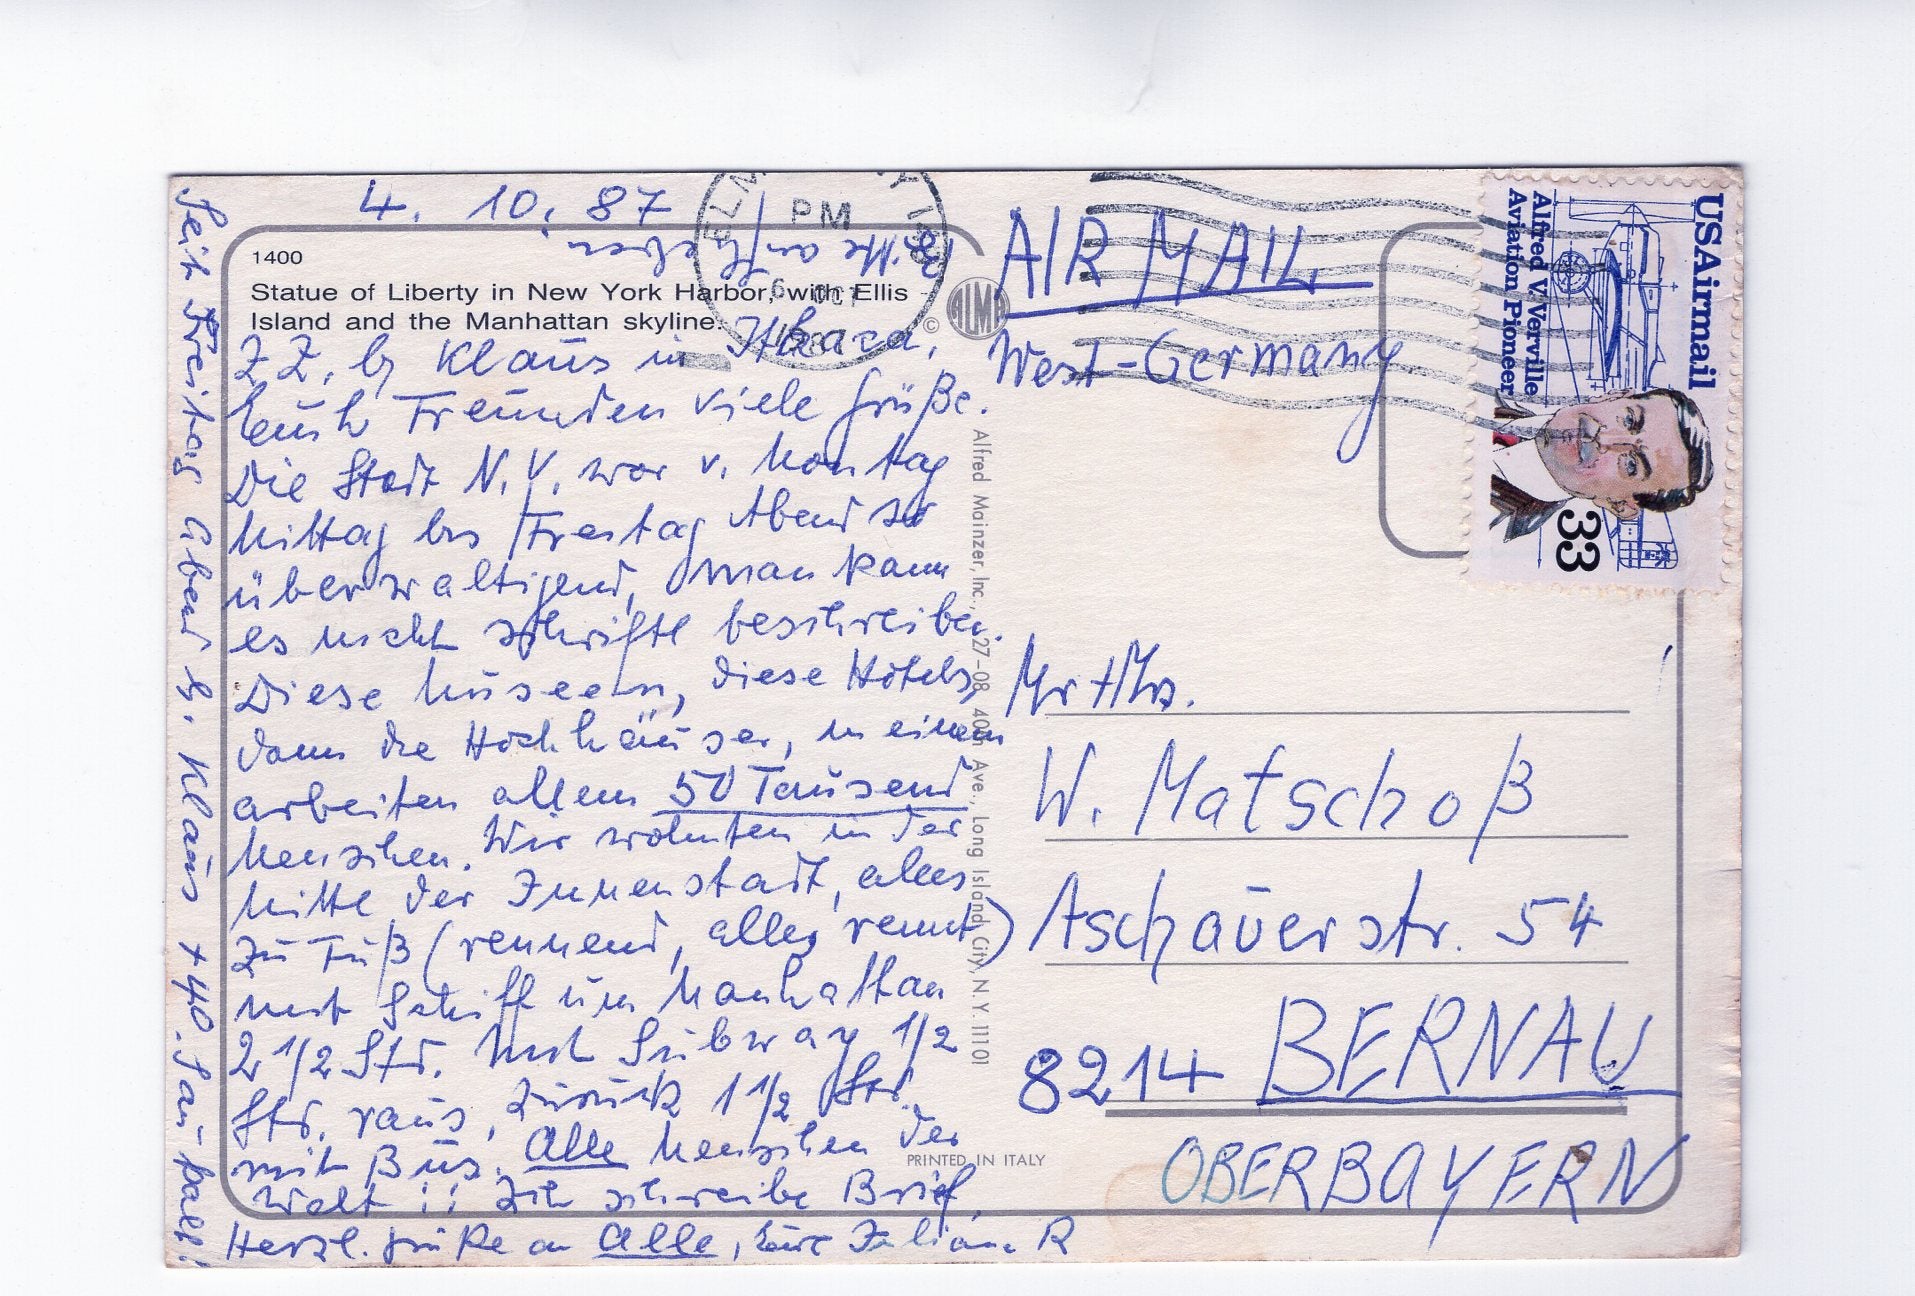 4. 10. 87
Bitte aufheben
1400
Statue of Liberty in New York Harbor, with Ellis
Island and the Manhattan skyline.
Z.Z. b. Klaus in Ithaca,
Euch Freunden viele Grüße.
Die Stadt N.Y. war v. Montag
Mittag bis Freitag Abend so
überwältigend, man kann
es nicht schriftl beschreiben.
Diese Museen, diese Hotels,
dann die Hochhäuser, in einem
arbeiten allein 50 Tausend
Menschen. Wir wohnten in der
Mitte der Innenstadt, alles
zu Fuß (rennend, alles rennt)
mit Schiff um Manhattan
2 1/2 Std. Mit Subway 1/2
Std. raus, zurück 1 1/2 Std.
mit Bus. Alle Menschen der
Welt!! Ich schreibe Brief.
Herzl. Grüße an Alle, Eure Juliane R
Seit Freitag Abend b. Klaus + 40. Saukalt!
PM
6 OCT
1987
© ALMA
Alfred Mainzer, Inc., 27-08 40th Ave., Long Island City, N.Y. 11101
PRINTED IN ITALY
AIR MAIL
West-Germany
USAirmail
Alfred V. Verville
Aviation Pioneer
33
Mr + Mrs.
W. Matschoß
Aschauerstr. 54
8214 BERNAU
OBERBAYERN